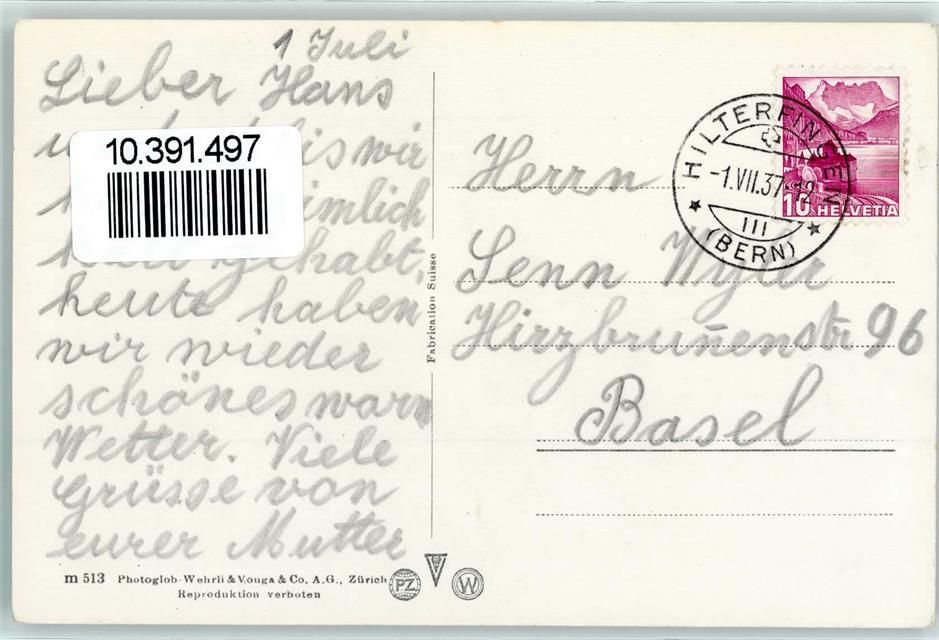 1 Juli
Lieber Hans
wir
imlich
gehabt,
heute haben
wir wieder
schönes warm
Wetter. Viele
Grüsse von
eurer Mutter
10.391.497
Herrn
Senn Wyler
Hirzbrun̄enstr 96
Basel
HILTERFINGEN
-1.VII.37-12
III
(BERN)
10 HELVETIA
Fabrication Suisse
m 513 Photoglob-Wehrli & Vouga & Co. A.G., Zürich
Reproduktion verboten
PZ
W